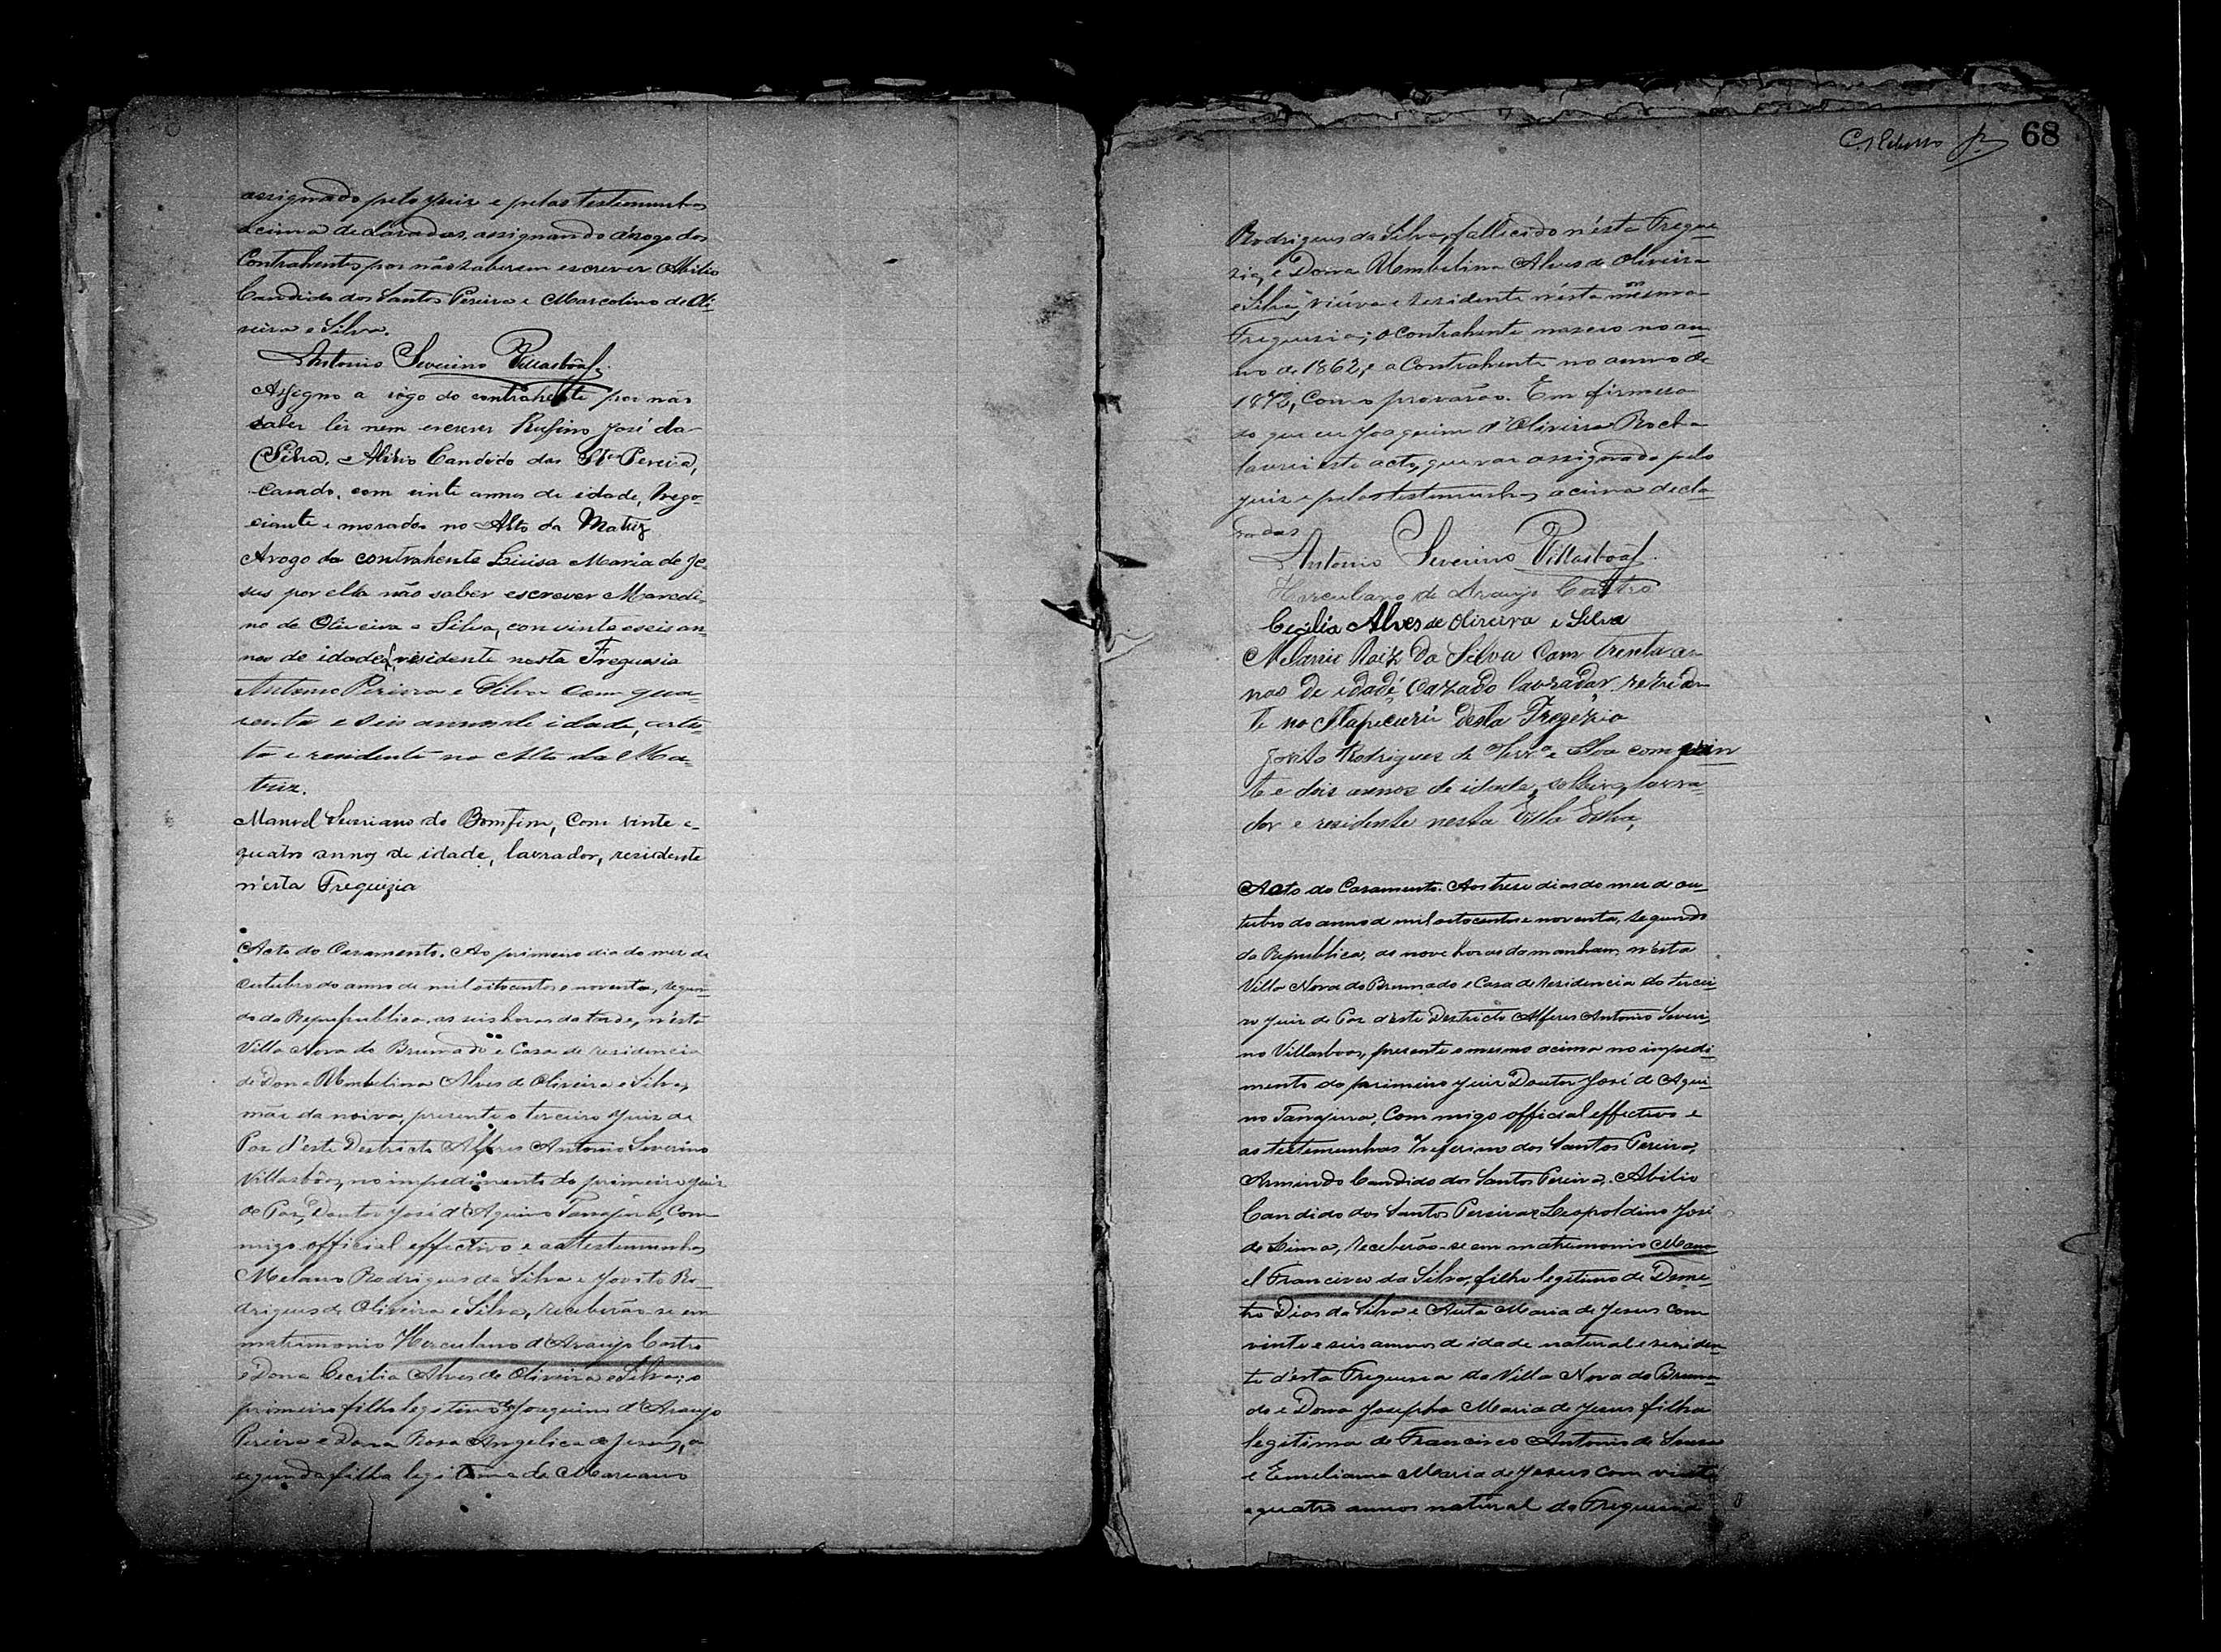 assignado pelo Juiz e pelas testemunhas
acima declaradas, assignando á rogo dos
Contrahentes, por não saberem escrever Abilio
Candido dos Santos Pereira e Marcolino de Oli-
veira e Silva.
Antonio Severino Villasbôas.
Assegno a rogo do contrahente por não
saber lêr nem escrever Rufino José da
Silva. e Abilio Candido dos Stos Pereira,
Casado, com vinte annos de idade, Nego-
ciante e morador no Alto da Matriz
Arogo da contrahente Luisa Maria de Je-
sus por ella não saber escrever Marcoli-
no de Oliveira e Silva, com vinte e seis an-
nos de idade, residente nesta Freguesia
Antonio Pereira e Silva com qua-
renta e seis annos de idade, artis-
ta e residente no Alto da Ma-
triz.
Manoel Severiano do Bomfim, Com vinte e
quatro annos de idade, lavrador, residente
n'esta Freguizia
Acto do Casamento. Ao primeiro dia do mez de
outubro do anno de mil oitocentos e noventa, segun-
do da Repupublica, as seis horas da tarde, n'esta
Villa Nova do Brumado e Casa de residencia
de Dona Umbelina Alves de Oliveira e Silva,
mãe da noiva, presente o terceiro Juiz de
Paz d'este Destricto Alferes Antonio Severino
Villasbôas, no impedimento do primeiro Juiz
de Paz, Doutor José d'Aquino Tanajura, Com
migo official effectivo e as testemunhas
Melanio Rodrigues da Silva e Jovito Ro-
drigues de Oliveira e Silva, receberão-se em
matrimonio Herculano d'Araujo Castro
e Dona Cecilia Alves de Oliveira e Silva; o
primeiro filho legitimo de Joaquim d'Araujo
Pereira e Dona Rosa Angelica de Jesus, a
segunda filha legitima de Marciano
68
Rodrigues da Silva, fallecido n'esta Fregue-
zia, e Dona Umbelina Alves de Oliveira
e Silva, viúva e residente n'esta mesma
Freguesia; o Contrahente nasceo no an-
no de 1862, e a Contrahente no anno de
1872, Como provarão. Em firmesa
do que eu Joaquim d'Oliveira Rocha
lavrei este acto, que vae assignado pelo
Juiz e pelas testemunhas acima decla-
radas
Antonio Severino Villasbôas.
Herculano de Araujo Castro
Cecilia Alves de Oliveira e Silva
Melanio Roiz Da Silva Com trenta an-
nos de idade, Cazado lavrador rezeden-
te no Itapicurú desta Fregezia
Jovito Rodrigues de Olivra e Silva com vin
te e dois annos de idade, solteiro, lavra-
dor e residente nesta Villa
Acto do Casamento. Aos trese dias do mez de ou-
tubro do anno de mil oitocentos e noventa, segundo
da Republica, as nove horas da manham, n'esta
Villa Nova do Brumado e Casa de residencia do tercei-
ro Juiz de Paz d'este Destricto Alferes Antonio Severi-
no Villasboas, presente o mesmo acima no impedi-
mento do primeiro Juiz Doutor José de Aqui-
no Tanajura, Com migo official effectivo e
as testemunhas Zeferino dos Santos Pereira,
Armindo Candido dos Santos Pereira, Abilio
Candido dos Santos Pereira e Leopoldino José
de Lima, receberão-se em matrimonio Mano-
el Francisco da Silva, filho legitimo de Deme-
tro Dias da Silva e Auta Maria de Jesus com
vinte e seis annos de idade natural e residen-
te d'esta Freguesia da Villa Nova do Bruma-
do e Dona Josepha Maria de Jesus filha
legitima de Francisco Antonio de Sousa
e Emiliana Maria de Jesus com vinte
e quatro annos natural da Freguesia